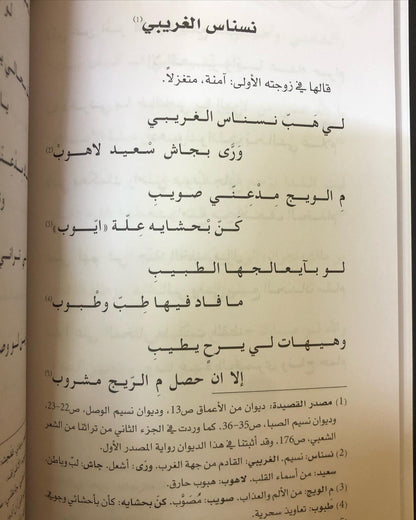 نسناس الغريبي (1)
قالها في زوجته الأولى: آمنة، متغزلاً.
لي هَبّ نسناس الغريبي
وَرَّى بجاش سْعيد لاهوبْ (2)
مِ الويج مدْعنّي صويبِ
كَنّ بْحشايه عِلّة «ايّوب» (3)
لو بآيعالجها الطبيبِ
ما فاد فيها طِبّ وطْبوب (4)
وهيهات لي يرحٍ يطيبِ
إلا ان حصل مِ الرّيج مشروب (5)
(1) مصدر القصيدة: ديوان من الأعماق ص13، وديوان نسيم الوصل، ص22-23،
وديوان نسيم الصبا، ص35-36، كما وردت في الجزء الثاني من تراثنا من الشعر
الشعبي، ص176، وقد أثبتنا في هذا الديوان رواية المصدر الأول.
(2) نسناس: نسيم. الغريبي: القادم من جهة الغرب. ورّى: أشعل. جاش: لبّ وباطن.
سعيد: من أسماء القلب. لاهوب: هبوب حارق.
(3) م الويج: من الألم والعذاب. صويب: مُصوَّب. كنّ بحشايه: كأن بأحشائي وجوفي
(4) طبوب: تعاويذ سحرية.